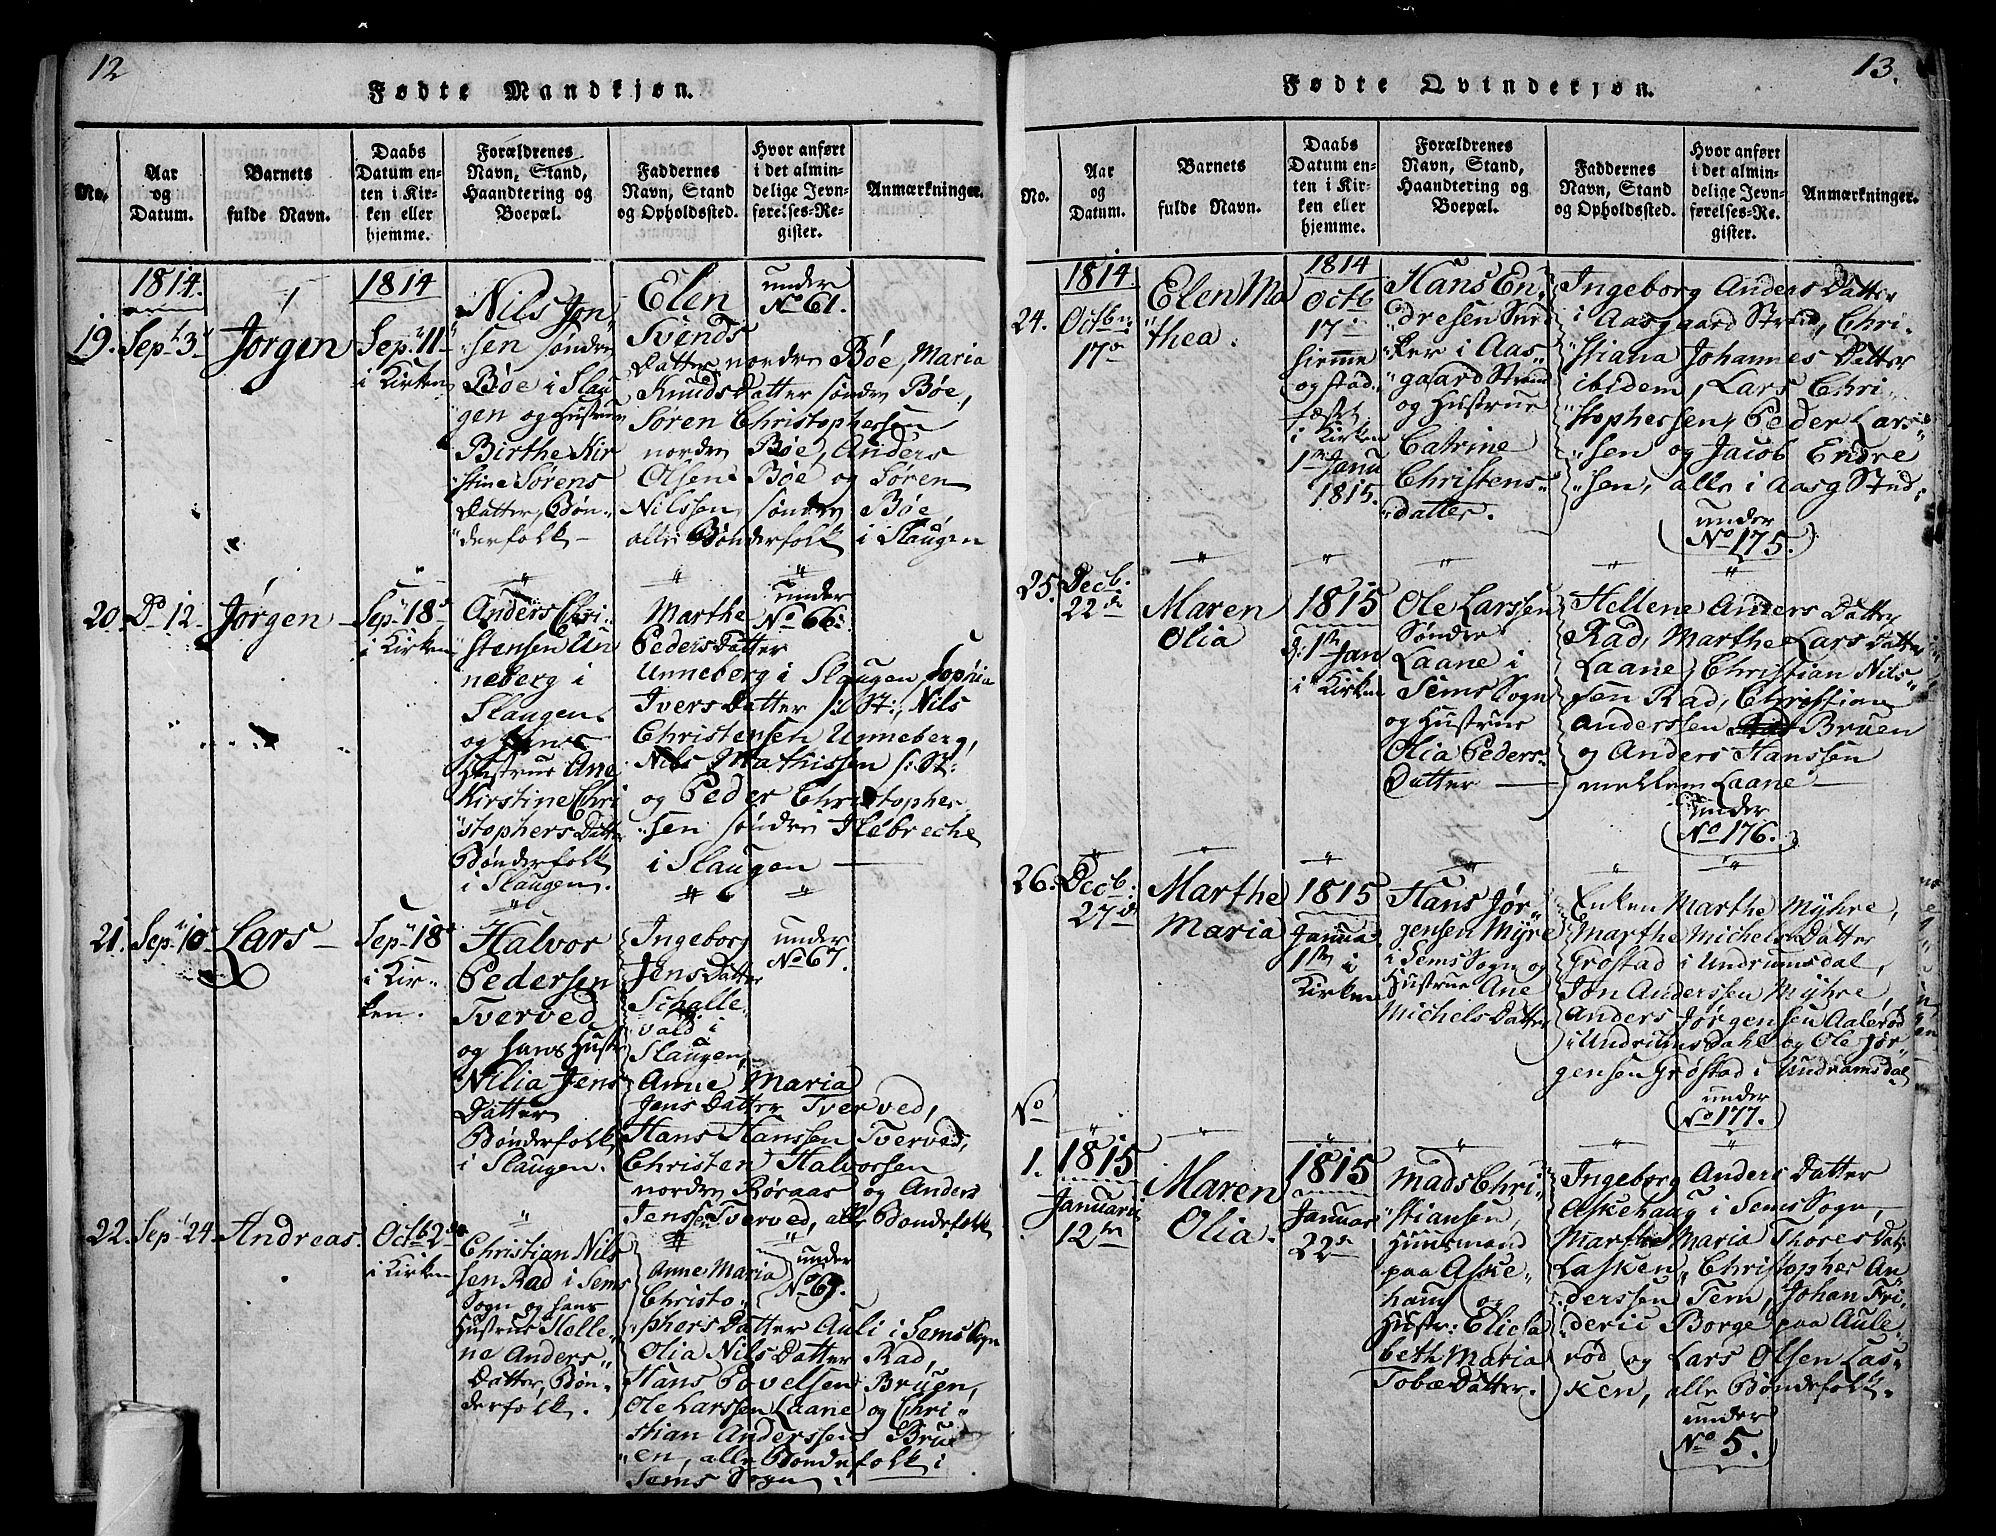 12
Fødte Mandkjøn.
No.
Aar
og
Datum.
Barnets
fulde Navn.
Daabs
Datum en-
ten i Kir-
ken eller
hjemme.
Forældrenes
Navn, Stand,
Haandtering og
Boepæl.
Faddernes
Navn, Stand
og Opholdssted.
Hvor anført
i det almin-
delige Jevn-
førelses-Re-
gister.
Anmærkninger.
1814.
19. Sep. 3
Jørgen
1814
Sep. 11
i Kirken
Nils Jon
sen søndre
Bøe i Slau
gen og Hustrue
Birthe Kir
stine Sørens
Datter, Bøn
derfolk
Elen
Svends
Datter nordre Bøe, Maria
Knuds Datter søndre Bøe,
Søren Christophersen
nordre Bøe, Anders
Olsen Bøe og Søren
Nilssen søndre Bøe,
alle Bønderfolk i Slaugen
under
No 61.
20. Do 12
Jørgen
Sep. 18
i Kirken
Anders Chri
stensen Un
neberg i
Slaugen
og hans
Hustrue Ane
Kirstine Chri
stophers Datter
Bønderfolk
i Slaugen.
Marthe
Peders Datter
Unneberg i Slaugen, Sophia
Ivers Datter s: St:, Nils
Christensen Unneberg,
Nils Mathissen s: St:
og Peder Christopher
sen søndre Ilebreche
i Slaugen
under
No 66.
21. Sep. 10
Lars
Sep. 18
i Kir-
ken.
Halvor
Pedersen
Tverved
og hans Hustr
Nilia Jens
Datter
Bønderfolk
i Slaugen.
Ingeborg
Jens Datter
Schalle-
vald i
Slaugen,
Anne Maria
Jens Datter Tverved,
Hans Hanssen Tverved,
Christen Halvorsen
nordre Røraas og Anders
Jenssen Tverved, alle Bondefolk
under
No 67.
22. Sep. 24.
Andreas.
Octb 2
i Kirken
Christian Nils
sen Rad i Sems
Sogn og hans
Hustrue Helle
ne Anders
Datter, Bøn
derfolk.
Anne Maria
Christo
phers Datter Auli i Sems Sogn
Olia Nils Datter Rad,
Hans Povelsen Bruen,
Ole Larssen Laane og Chri
stian Anderssen Brue
en, alle Bondefolk i
Sems Sogn.
under
No 69.
13.
Fødte Qvindekjøn.
No.
Aar
og
Datum.
Barnets
fulde Navn.
Daabs
Datum en-
ten i Kir-
ken eller
hjemme.
Forældrenes
Navn, Stand,
Haandtering og
Boepæl.
Faddernes
Navn, Stand
og Opholdssted.
Hvor anført
i det almin-
delige Jevn-
førelses-Re-
gister.
Anmærkninger.
1814.
24. Octb
17
Elen Ma
thea.
1814
Octb
17
hiemme
og stad
fæstet
i Kirken
1 Janu
1815.
Hans En
dresen Snid
ker i Aas
gaard Strand
og Hustrue
Catrine
Christens
datter.
Ingeborg Anders Datter
i Aasgaard Strand, Chri
stiana Johannes Datter
ibidem, Lars Chri
stophersen, Peder Lars
sen og Jacob Endre
sen, alle i Aasg Strnd:
under
No 175.
25. Decb.
22
Maren
Olia
1815
d: 1 Jan
i Kirken
Ole Larssen
Søndre
Laane i
Sems Sogn
og Hustrue
Olia Peders
Datter
Hellene Anders Datter
Rad, Marthe Lars Datter
Laane, Christian Nils
sen Rad, Christian
Anderssen Bruen
og Anders Hanssen
mellem Laane
under
No 176.
26. Decb.
27
Marthe
Maria
1815
Janua
1 i
Kirken
Hans Jør
gensen Myre
i Sems Sogn og
Hustrue Ane
Michels Datter
Enken Marthe Myhre,
Marthe Michels Datter
Grøstad i Undrumsdal,
Jon Anderssen Myhre,
Anders Jørgensen Aalerød
i Undrumsdahl og Ole Jør
gensen Grøstad i Undramsdal
under
No 177.
No
1. 1815
Januarii
12
Maren
Olia.
1815
Januar
22
Mads Chri
stiansen,
Huusmand
paa Aske
haug og
Hustr: Elisa
beth Maria
Tobæ Datter.
Ingeborg Anders Datter
Askehaug i Sems Sogn,
Marthe Maria Thores Dat:
Lasken, Christopher An
derssen Tem, Johan Fri
deric Borge paa Aule
rød og Lars Olsen Las
ken, alle Bøndefolk.
under
No 5.